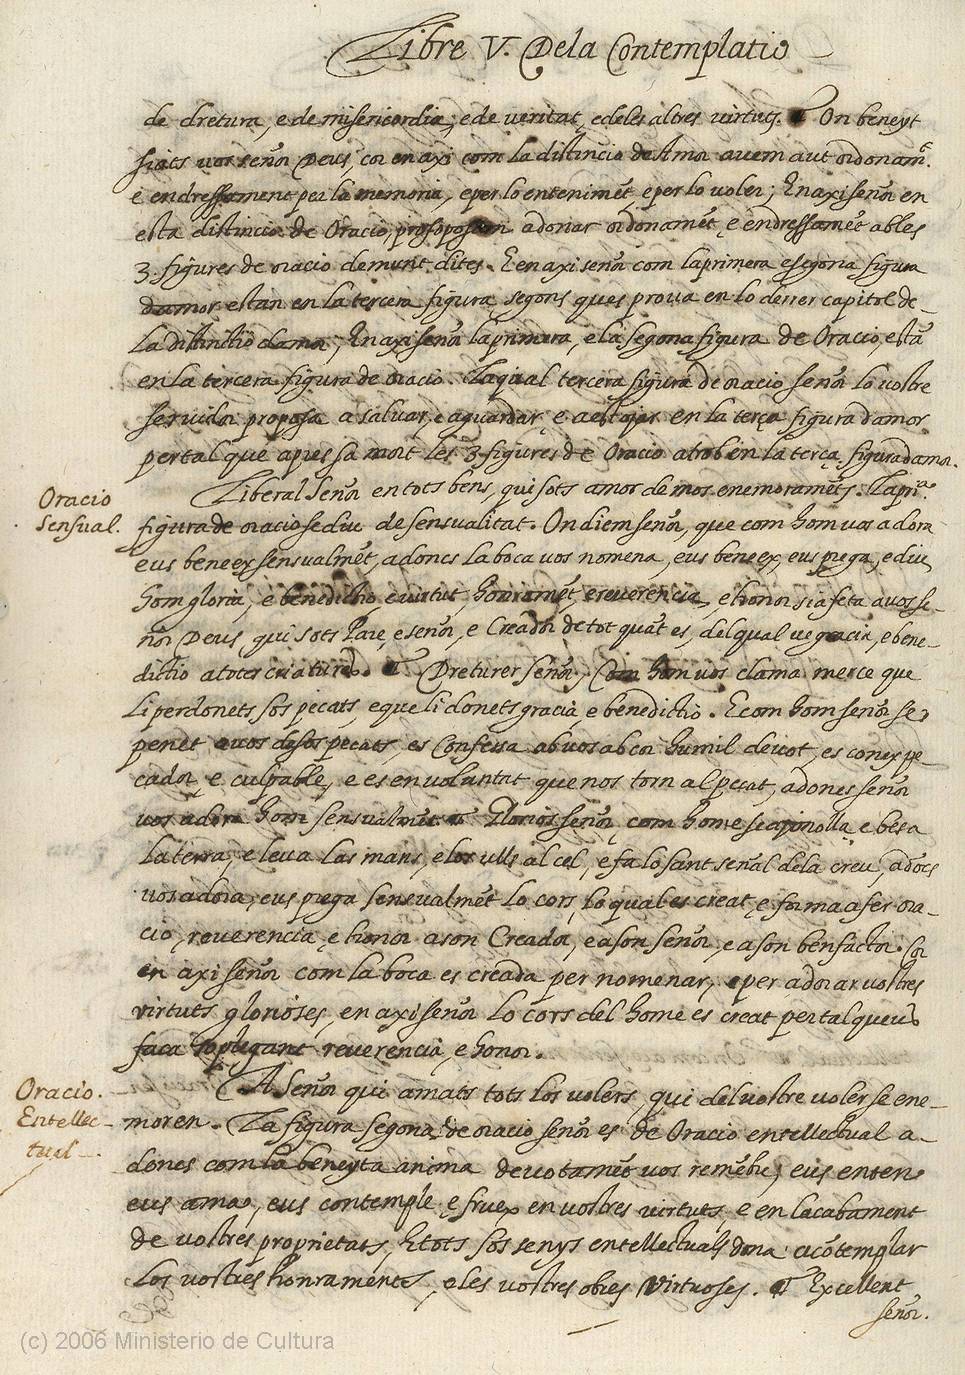 Libre V. De la Contemplatio
de dretura, e de misericordia, e de veritat, e deles altres virtuts. On beneyt
siats vos señor Deus, cor en axi com la distincio de Amor avem aut ordonamt.
e endressament per la memoria, e per lo entenimēt, e per lo voler; En axi señor en
esta distincio de Oracio, proposam a donar ordonamēt, e endressamēt ab les
3. figures de oracio demunt dites. E en axi señor com la primera e segona figura
damor estan en la tercera figura, segons ques prova en lo derrer capitol de
la distinctio damor; En axi señor la primera, e la segona figura de Oracio, estā
en la tercera figura de oracio. La qual tercera figura de oracio señor lo vostre
servidor proposa a salvar, e aguardar, e a estojar en la terça figura damor
per tal que apres sa mort les 3. figures de Oracio atrob en la terça figura damor.
Oracio
Sensual.
Liberal Señor en tots bens, qui sots amor de mos enemoramēts. La prira.
figura de oracio se diu de sensualitat. On diem señor, que com hom vos adora
eus beneex sensualmēt, adoncs la boca vos nomena, eus beneex, eus prega, e diu,
hom gloria, e benedictio, e virtut, honramēt, e reverencia, e honor sia feta a vos se-
ñor Deus, qui sots Pare, e señor, e Creador de tot quāt es, del qual ve gracia, e bene-
dictio a totes criatures. Dreturer señor, Com hom vos clama merce que
li perdonets sos pecats, e que li donets gracia, e benedictio. E com hom señor se
penet a vos de sos pecats, es Confessa ab vos ab cor humil devot, es conex pe-
cador, e culpable, e es en voluntat que nos torn al pecat, adoncs señor
vos adora hom sensualmēt. Glorios señor com home se aginolla, e besa
la terra, e leva las mans, e los ulls al cel, e fa lo sant señal dela creu, adōcs
vos adora, eus prega sensualmēt lo cors, lo qual es creat, e format a fer ora-
cio, reverencia, e honor a son Creador, e a son señor, e a son benfactor. Cor
en axi señor com la boca es creada per nomenar, e per adorar vostres
virtuts glorioses, en axi señor lo cors del home es creat per tal queus
faca soplegant reverencia, e honor.
Oracio.
Entellec-
tual.
A Señor qui amats tots los volers, qui del vostre voler se ene-
moren. La figura segona de oracio señor es de Oracio entellectual a-
doncs com la beneyta anima devotamēt vos remēbr, eus enten
eus ama, eus contemple, e fruex en vostres virtuts, e en lacabament
de vostres proprietats, E tots sos senys entellectuals dona a cōtemplar
los vostres honraments, e les vostres obres Virtuoses. Excellent
señor.
(c) 2006 Ministerio de Cultura